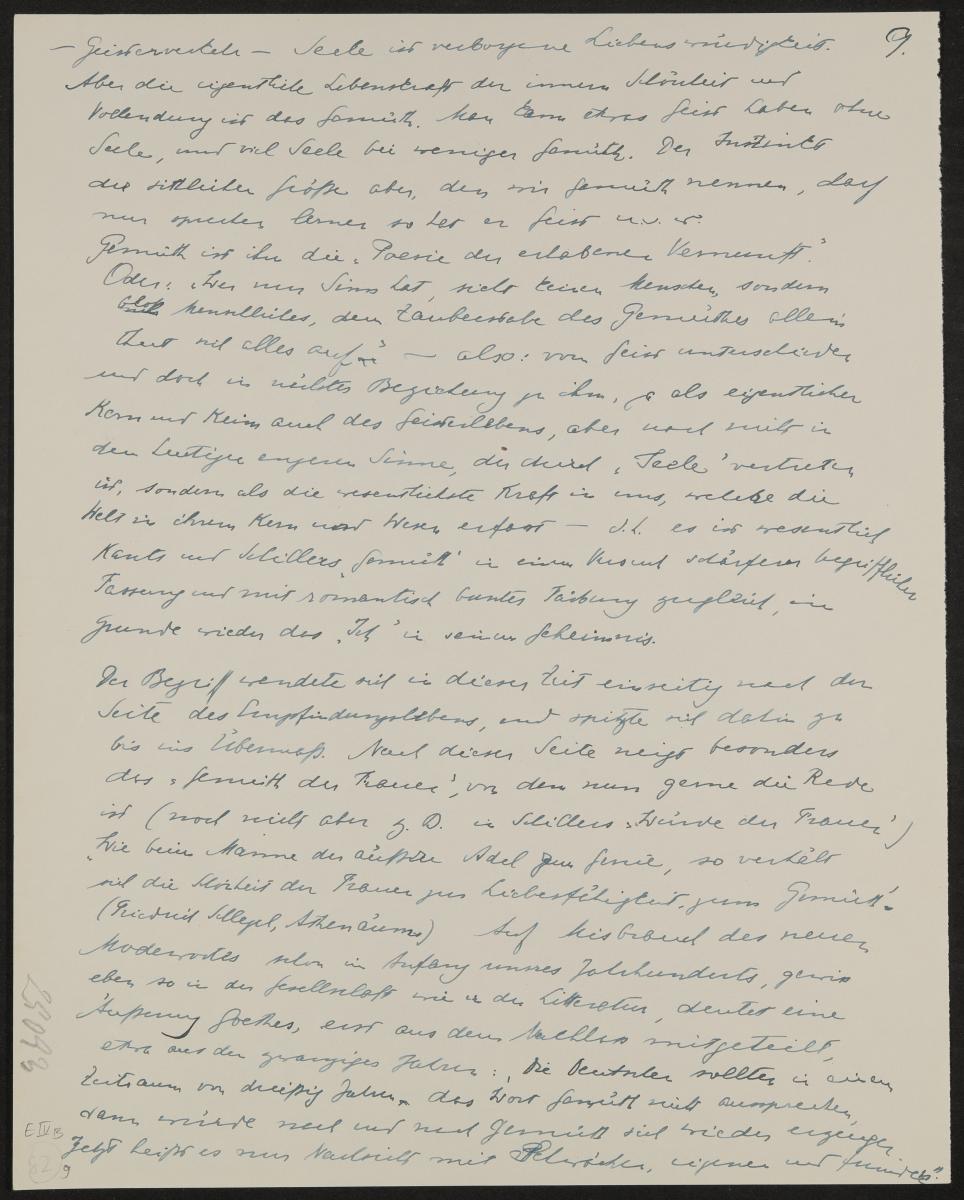 9.
— Geisterverkehr — Seele ist verborgene Liebenswürdigkeit.
Aber die eigentliche Lebenskraft der innern Schönheit und
Vollendung ist das Gemüth. Man kann etwas Geist haben ohne
Seele, und viel Seele bei weniger Gemüth. Der Instinkt
der sittlichen Größe aber, den wir Gemüth nennen, darf
nur sprechen lernen so hat er Geist u.s.w.
Gemüth ist ihm die „Poesie der erhabenen Vernunft".
Oder: „Wer nun Sinn hat, sieht keinen Menschen, sondern
bloß Menschliches, dem Zauberstabe des Gemüthes allein
thut sich alles auf" — also: vom Geist unterschieden
und doch in nächster Beziehung zu ihm, ja als eigentlicher
Kern und Keim auch des Geisteslebens, aber noch nicht in
dem heutigen engeren Sinne, der durch „Seele" vertreten
ist, sondern als die wesentlichste Kraft in uns, welche die
Welt in ihrem Kern und Wesen erfasst — d.h. es ist wesentlich
Kants und Schillers „Gemüth" in einem Versuch schärferer begrifflicher
Fassung und mit romantisch bunter Färbung zugleich, im
Grunde wieder das „Ich" in seinem Geheimnis.
Der Begriff wendete sich in dieser Zeit einseitig nach der
Seite des Empfindungslebens, und spitzte sich dahin zu
bis ins Übermaß. Nach dieser Seite neigt besonders
das „Gemüth der Frauen", von dem nun gerne die Rede
ist (noch nicht aber z. B. in Schillers „Würde der Frauen")
„Wie beim Manne der äußere Adel zum Genie, so verhält
sich die Schönheit der Frauen zur Liebesfähigkeit, zum Gemüth".
(Friedrich Schlegel, Athenäums) Auf Misbrauch des neuen
Modewortes schon im Anfang unsres Jahrhunderts, gewis
eben so in der Gesellschaft wie in der Litteratur, deutet eine
Äußerung Goethes, erst aus dem Nachlass mitgeteilt,
etwa aus den zwanziger Jahren: „Die Deutschen sollten in einem
Zeitraum von dreißig Jahren das Wort Gemüth nicht aussprechen,
dann würde nach und nach Gemüth sich wieder erzeugen
Jetzt heißt es nur Nachsicht mit Schwächen, eignen und fremden".
E IV B
82
9